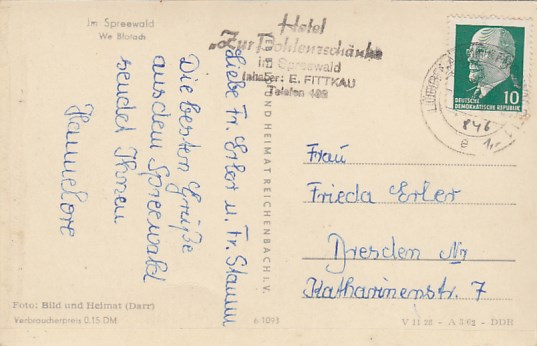 Im Spreewald
Wie Blotach
Hotel
„Zur Bohlenschänke
im Spreewald
Inhaber: E. FITTKAU
Telefon
DEUTSCHE
DEMOKRATISCHE REPUBLIK
10
e
Liebe Fr. Erler u. Fr. Stamm
Die besten Grüße
aus dem Spreewald
sendet Ihnen
Hannelore
UND HEIMAT REICHENBACH i. V.
Frau
Frieda Erler
Dresden Nr
Katharinenstr. 7
Foto: Bild und Heimat (Darr)
Verbraucherpreis 0.15 DM
6 1091
DDR